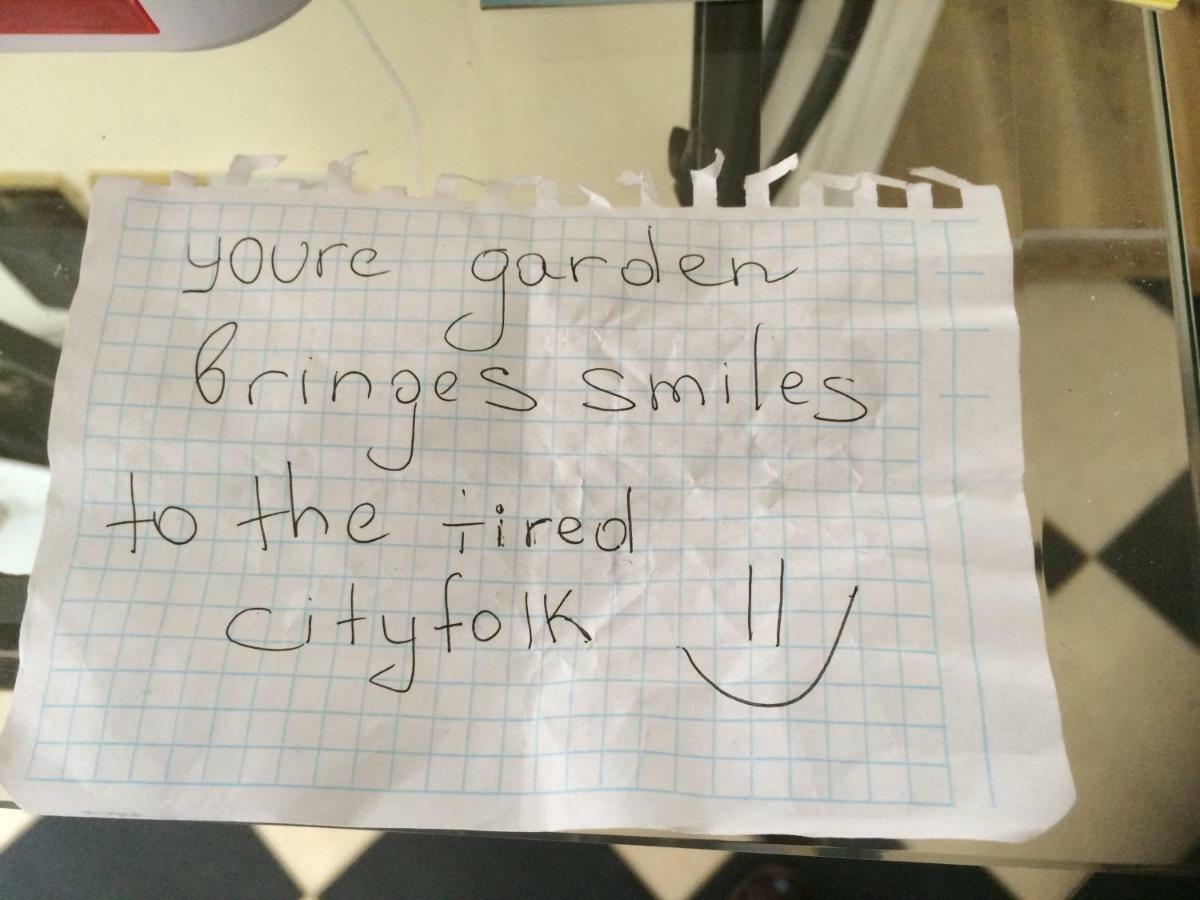 youre garden
bringes smiles
to the tired
cityfolk